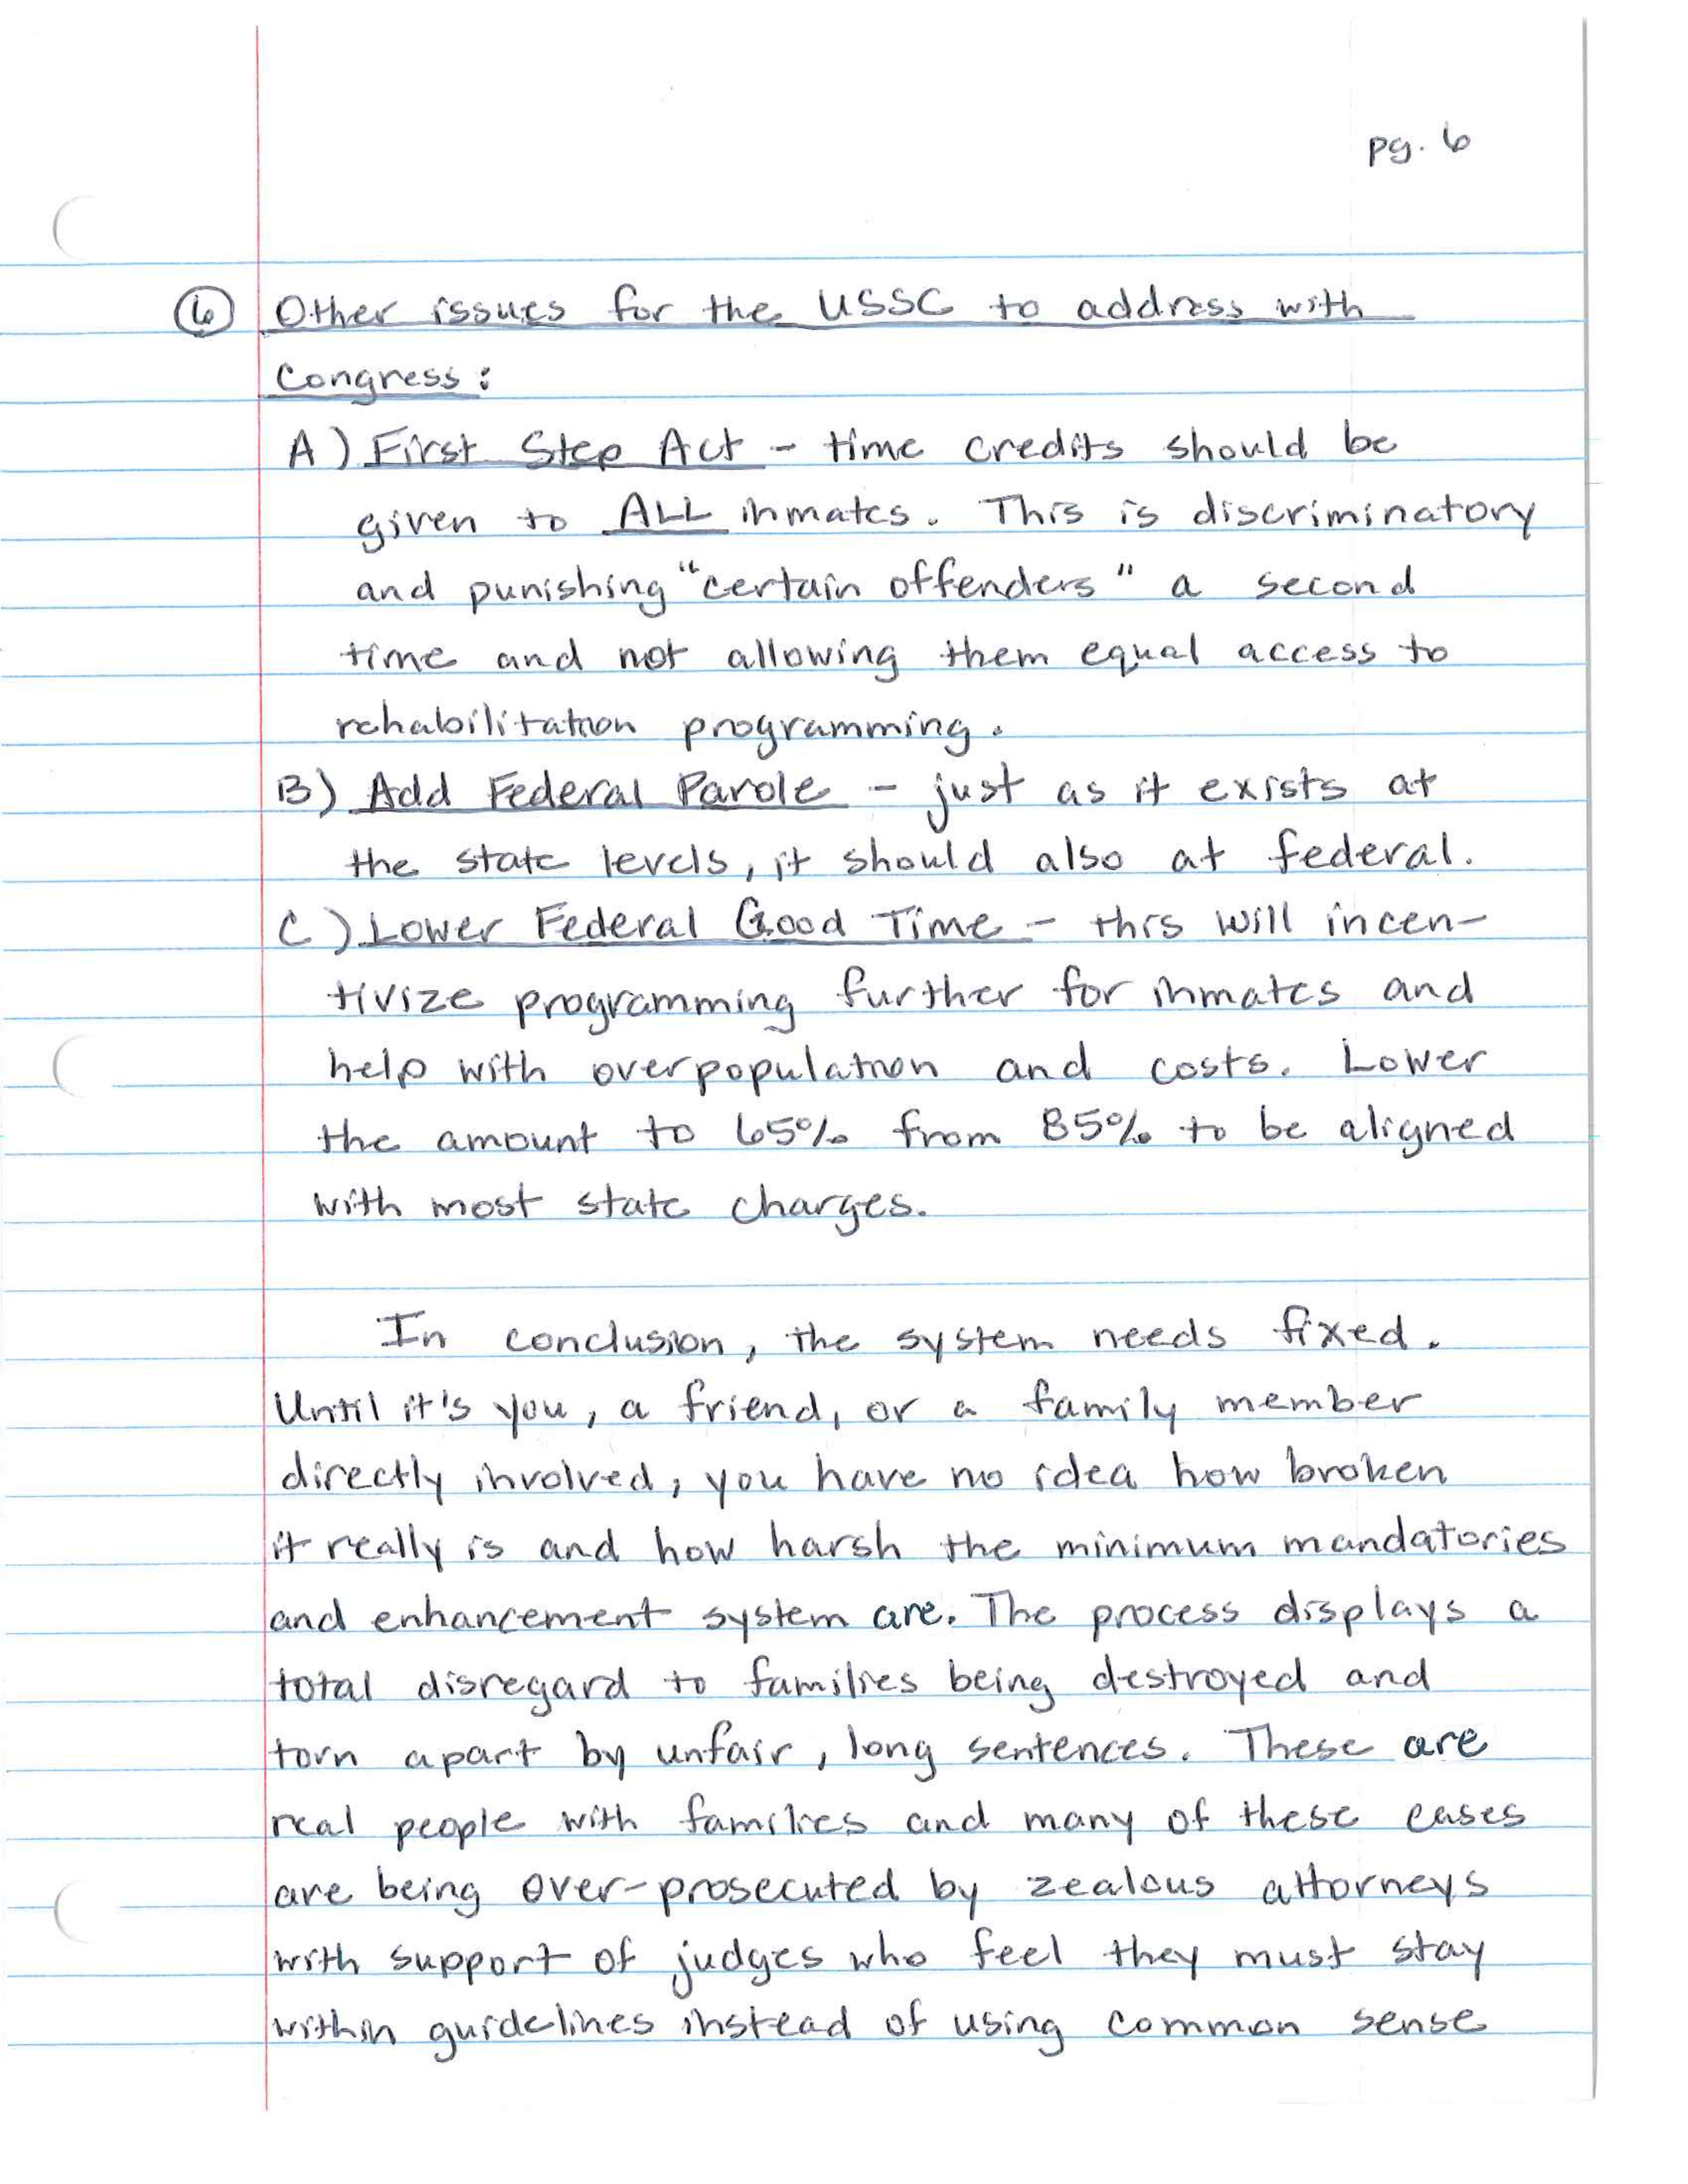 pg. 6
6 Other issues for the USSC to address with
Congress:
A) First Step Act - time credits should be
given to ALL inmates. This is discriminatory
and punishing "certain offenders" a second
time and not allowing them equal access to
rehabilitation programming.
B) Add Federal Parole - just as it exists at
the state levels, it should also at federal.
C) Lower Federal Good Time - this will incen-
tivize programming further for inmates and
help with overpopulation and costs. Lower
the amount to 65% from 85% to be aligned
with most state charges.
In conclusion, the system needs fixed.
Until it's you, a friend, or a family member
directly involved, you have no idea how broken
it really is and how harsh the minimum mandatories
and enhancement system are. The process displays a
total disregard to families being destroyed and
torn apart by unfair, long sentences. These are
real people with families and many of these cases
are being over-prosecuted by zealous attorneys
with support of judges who feel they must stay
within guidelines instead of using common sense